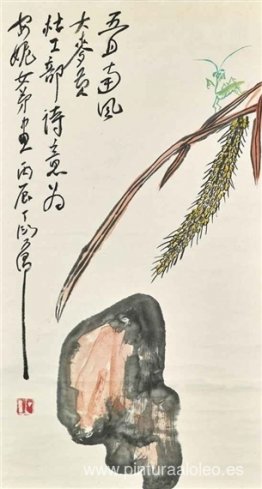 五月南風
大麥黃
杜工部詩意為
安妮女弟画丙辰丁衍庸
www.pinturaaloleo.es